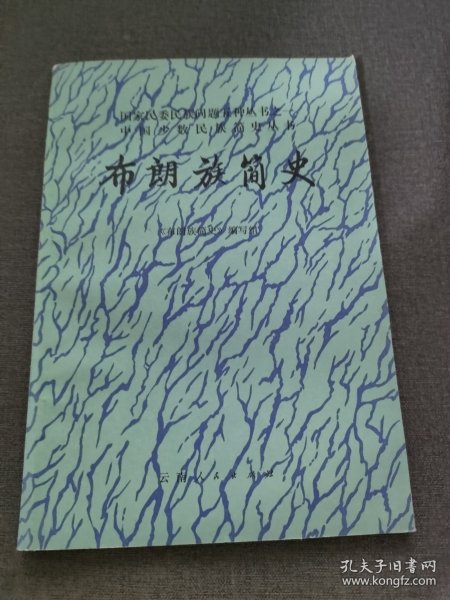 国家民委民族问题五种丛书之一
中国少数民族简史丛书
布朗族简史
《布朗族简史》编写组
云南人民出版社
孔夫子旧书网
www.kongfz.com